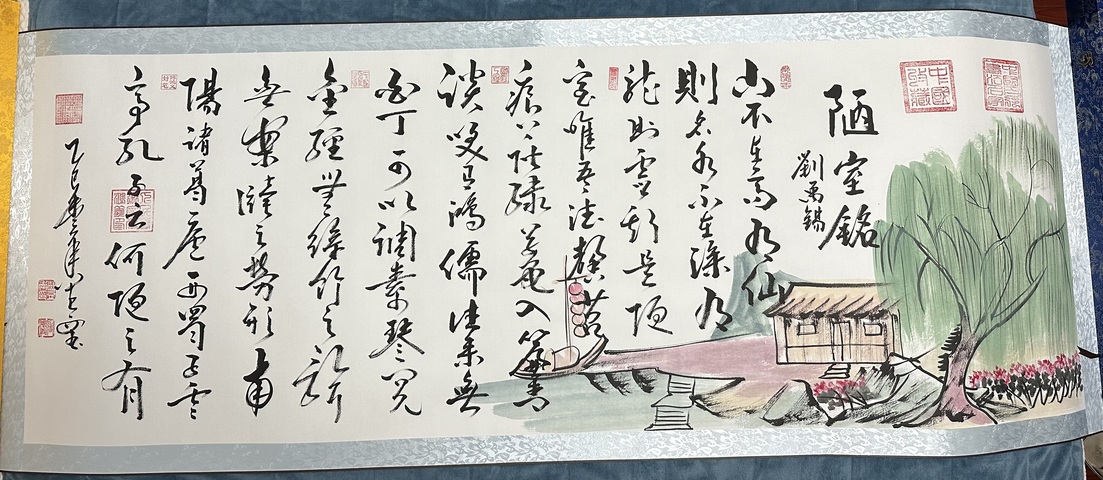 陋室銘
劉禹錫
山不在高有仙
則名水不在深有
龍則靈斯是陋
室唯吾德馨苔
痕上階綠草色入簾青
談笑有鴻儒往來無
白丁可以調素琴閱
金經無絲竹之亂耳
無案牘之勞形南
陽諸葛廬西蜀子雲
亭孔子云何陋之有
乙巳